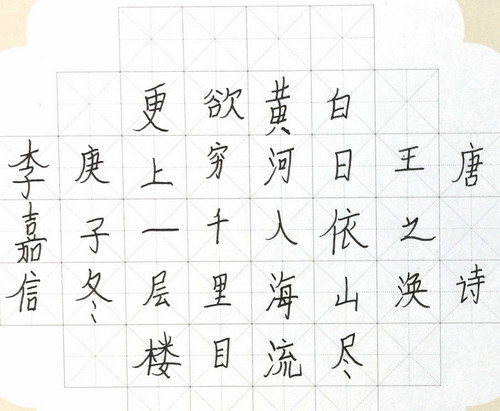 唐诗
王之涣
白日依山尽
黄河入海流
欲穷千里目
更上一层楼
庚子冬
李嘉信